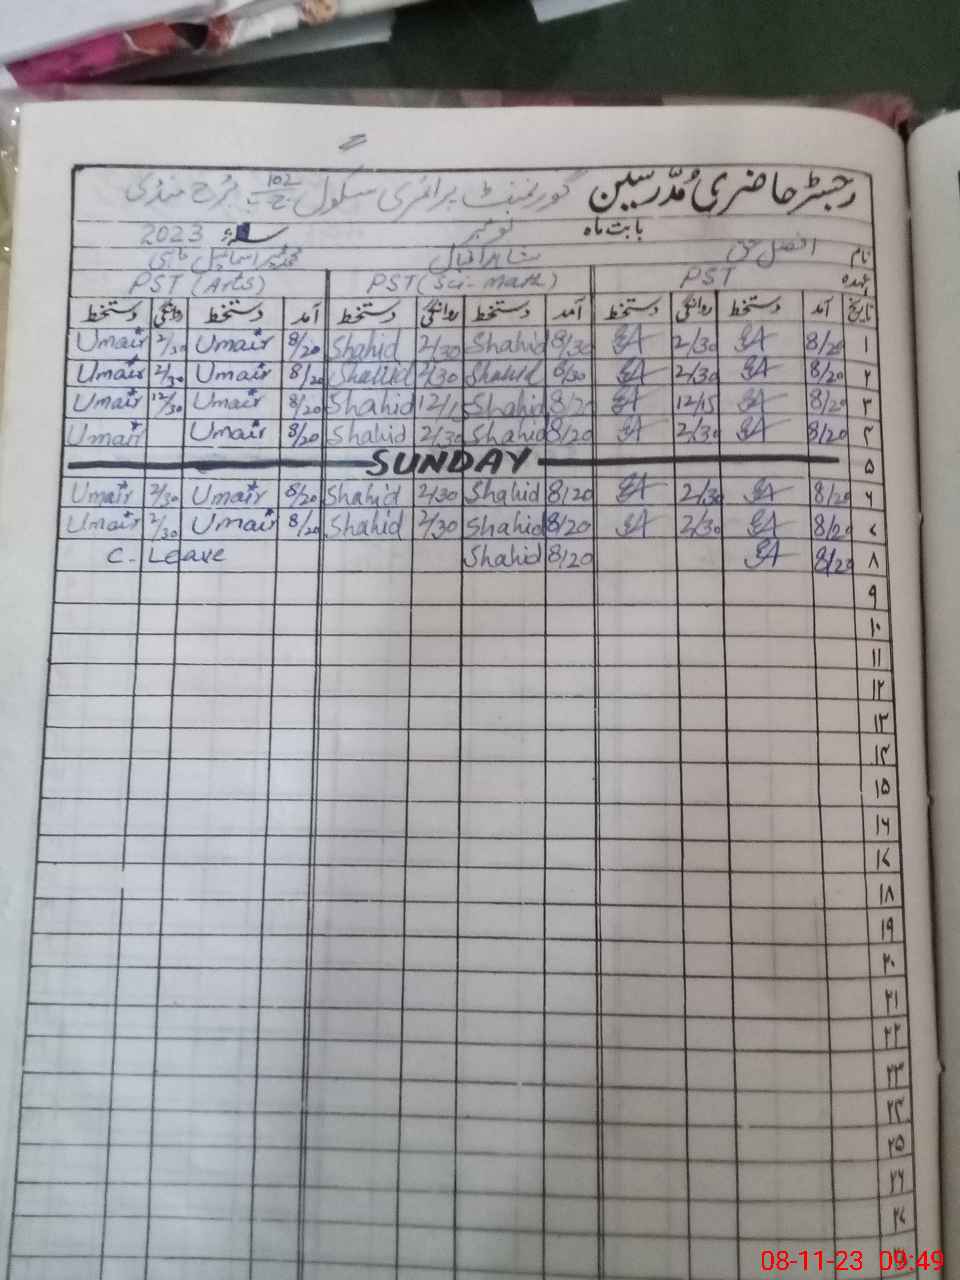 رجسٹر حاضری مُدرّسین گورنمنٹ پرائمری سکول 102 ج ب بُرج منڈی
بابت ماہ نومبر سنہء 2023
نام افضل حق شاہد اقبال محمد عمیر اسماعیل
عہدہ PST PST (Sci-math) PST (Arts)
تاریخ آمد دستخط روانگی دستخط آمد دستخط روانگی دستخط آمد دستخط روانگی دستخط
۱ 8/20 2/30 8/30 Shahid 2/30 Shahid 8/20 Umair 2/30 Umair
۲ 8/20 2/30 8/30 Shahid 2/30 Shahid 8/20 Umair 2/30 Umair
۳ 8/20 12/15 8/20 Shahid Shahid 8/20 Umair 12/30 Umair
۴ 8/20 2/30 8/20 Shahid 2/30 Shahid 8/20 Umair Umair
۵ SUNDAY
۶ 8/20 2/30 8/20 Shahid 2/30 Shahid 8/20 Umair 2/30 Umair
۷ 8/20 2/30 8/20 Shahid 2/30 Shahid 8/20 Umair 2/30 Umair
۸ 8/20 8/20 Shahid C. Leave
۹
۱۰
۱۱
۱۲
۱۳
۱۴
۱۵
۱۶
۱۷
۱۸
۱۹
۲۰
۲۱
۲۲
۲۳
۲۴
۲۵
۲۶
۲۷
08-11-23 09:49